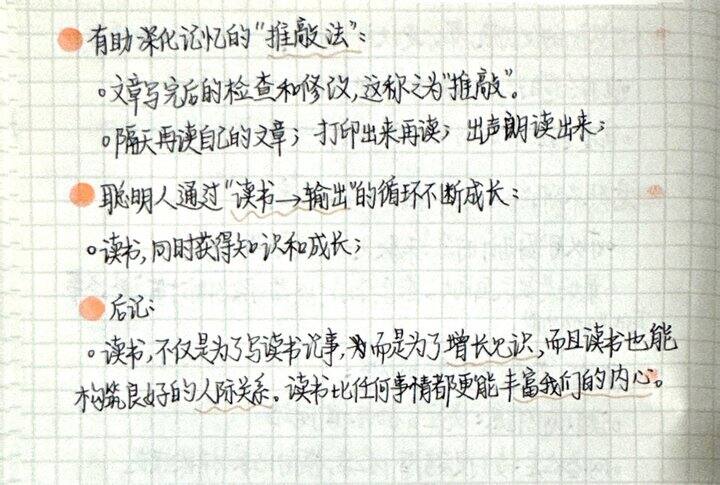 有助深化记忆的“推敲法”:
。文章写完后的检查和修改,这称之为“推敲”。
。隔天再读自己的文章;打印出来再读;出声朗读出来;
聪明人通过“读书→输出”的循环不断成长:
。读书,同时获得知识和成长;
后记:
。读书,不仅是为了写读书记事,而是为了增长见识,而且读书也能
构筑良好的人际关系。读书比任何事情都更能丰富我们的内心。